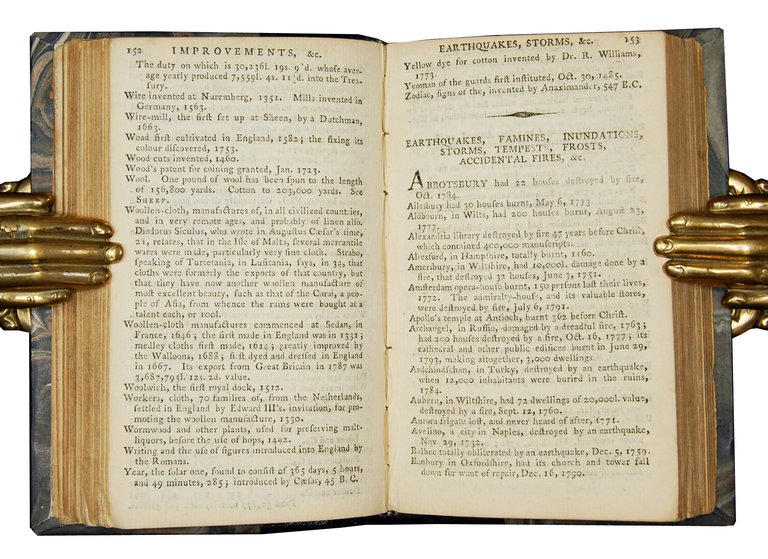 152 IMPROVEMENTS, &c.
The duty on which is 30,236l. 19s. 9¼d. whose aver-
age yearly produced 7,559l. 4s. 11¼d. into the Trea-
sury.
Wire invented at Nuremberg, 1351. Mills invented in
Germany, 1563.
Wire-mill, the first set up at Sheen, by a Dutchman,
1663.
Woad first cultivated in England, 1582; the fixing its
colour discovered, 1753.
Wood cuts invented, 1460.
Wood's patent for coining granted, Jan. 1723.
Wool. One pound of wool has been spun to the length
of 156,800 yards. Cotton to 203,000 yards. See
SHEEP.
Woollen-cloth, manufactures of, in all civilized countries,
and in very remote ages, and probably of linen also.
Diodorus Siculus, who wrote in Augustus Cæsar's time,
21, relates, that in the Isle of Malts, several mercantile
wares were made, particularly very fine cloth. Strabo,
speaking of Turtetania, in Lusitania, says, in 34, that
cloths were formerly the exports of that country, but
that they have now another woollen manufacture of
most excellent beauty, such as that of the Corai, a peo-
ple of Asia, from whence the rams were bought at a
talent each, or 100l.
Woollen-cloth manufactures commenced at Sedan, in
France, 1646; the first made in England was in 1331;
medley cloths first made, 1614; greatly improved by
the Walloons, 1688; first dyed and dressed in England
in 1667. Its export from Great Britain in 1787 was
3,687,795l. 12s. 2d. value.
Woolwich, the first royal dock, 1512.
Workers, cloth, 70 families of, from the Netherlands,
settled in England by Edward III's. invitation, for pro-
moting the woollen manufacture, 1330.
Wormwood and other plants, used for preserving malt-
liquors, before the use of hops, 1492.
Writing and the use of figures introduced into England by
the Romans.
Year, the solar one, found to consist of 365 days, 5 hours,
and 49 minutes, 285; introduced by Cæsar, 45 B. C.
EARTHQUAKES, STORMS, &c. 153
Yellow dye for cotton invented by Dr. R. Williams,
1773.
Yeoman of the guards first instituted, Oct. 30, 1485.
Zodiac, signs of the, invented by Anaximander, 547 B.C.
EARTHQUAKES, FAMINES, INUNDATIONS,
STORMS, TEMPESTS, FROSTS,
ACCIDENTAL FIRES, &c.
ABBOTSBURY had 22 houses destroyed by fire,
Oct. 1784.
Ailesbury had 30 houses burnt, May 6, 1773
Aldbourn, in Wilts, had 200 houses burnt, August 23,
1777.
Alexandria library destroyed by fire 47 years before Christ,
which contained 400,000 manuscripts.
Alresford, in Hampshire, totally burnt, 1160.
Amersbury, in Wiltshire, had 10,000l. damage done by a
fire, that destroyed 32 houses, June 3, 1751.
Amsterdam opera-house burnt, 150 persons lost their lives,
1772. The admiralty-house, and its valuable stores,
were destroyed by fire, July 6, 1791.
Apollo's temple at Antioch, burnt 362 before Christ.
Archangel, in Russia, damaged by a dreadful fire, 1763;
had 200 houses destroyed by a fire, Oct. 16, 1777; its
cathedral and other public edifices burnt in June 29,
1793, making altogether, 3,000 dwellings.
Ardchindscham, in Turky, destroyed by an earthquake,
when 12,000 inhabitants were buried in the ruins,
1784.
Aubern, in Wiltshire, had 72 dwellings of 20,000l. value,
destroyed by a fire, Sept. 12, 1760.
Aurora frigate lost, and never heard of after, 1771.
Avelino, a city in Naples, destroyed by an earthquake,
Nov. 29, 1732.
Balbec totally obliterated by an earthquake, Dec. 5, 1759.
Banbury in Oxfordshire, had its church and tower fall
down for want of repair, Dec. 16, 1790.